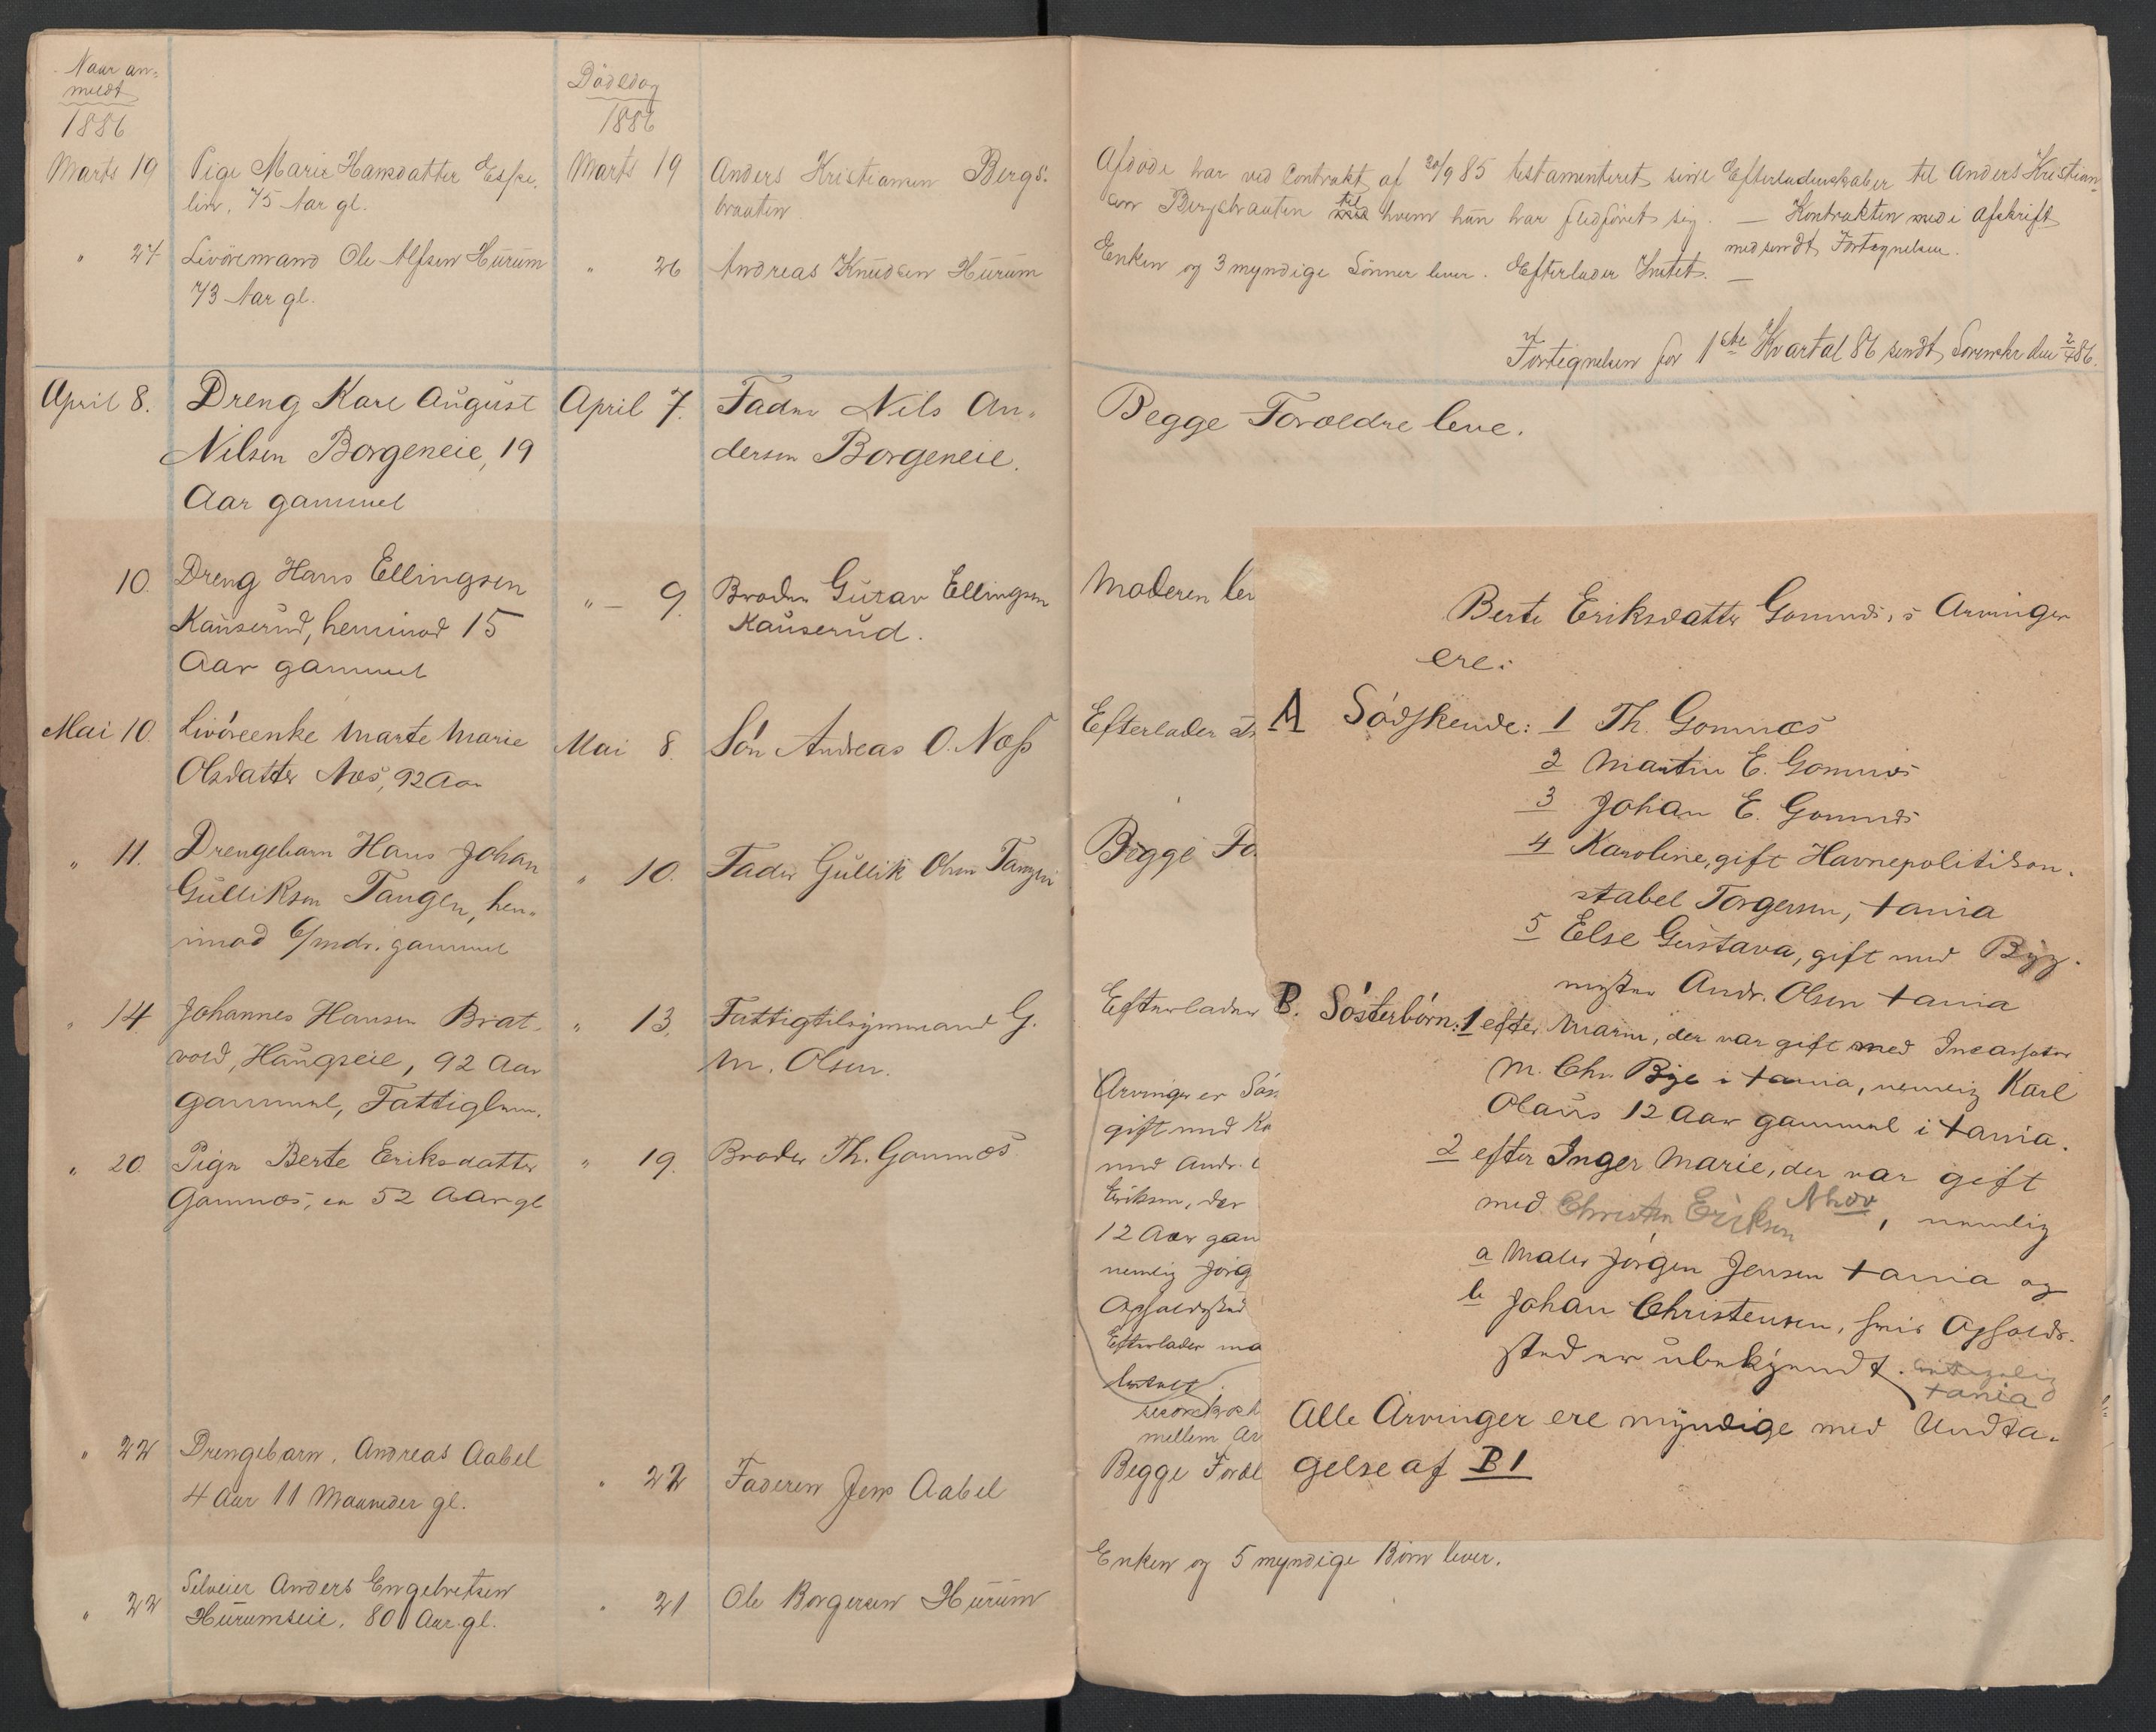 Naar an-
meldt
1886
Dödsdag
1886
Marts 19
Pige Marie Hansdatter Espe-
lin, 75 Aar gl.
Marts 19
Anders Kristiansen Bergs-
braaten
Afdöde har ved Contrakt af 30/9 85 testamenteret sine Efterladenskaber til Anders Kristian-
sen Bergsbraaten til hvem hun har fledfört sig. — Kontrakten i Afskrift
medsendt Fortegnelsen.
" 27
Livöremand Ole Alfsen Hurum
73 Aar gl.
" 26
Andreas Knudsen Hurum
Enken og 3 myndige Sönner lever. Efterlader Intet. —
Fortegnelsen for 1ste Kvartal 86 sendt Sorenskr den 2/4 86.
April 8.
Dreng Karl August
Nilsen Borgeneie, 19
Aar gammel
April 7.
Fader Nils An-
dersen Borgeneie.
Begge Forældre leve.
10.
Dreng Hans Ellingsen
Kauserud, henimod 15
Aar gammel
" — 9.
Broder Gustav Ellingsen
Kauserud.
Moderen lev
Mai 10.
Livöreenke Marte Marie
Olsdatter Næs, 92 Aar
Mai 8.
Sön Andreas O. Næss
Efterlader
" 11.
Drengebarn Hans Johan
Gulliksen Tangen, hen-
imod 6/mdr. gammel
" 10.
Fader Gullik Olsen Tangen
Begge Fo
" 14
Johannes Hansen Brat-
vold, Haugseie, 92 Aar
gammel, Fattiglem.
" 13.
Fattigtilsynsmand G.
M. Olsen.
Efterlader
" 20.
Pige Berte Eriksdatter
Gomnæs, ca 52 Aar gl
" 19.
Broder Th. Gomnæs
Arvinger er Sös
gift med Ka
med Andr.
Eriksen, der
12 Aar gam
nemlig Jörg
Opholdssted
Efterlader ma
mellem Ar
" 22
Drengebarn, Andreas Aabel
4 Aar 11 Maaneder gl.
" 22
Faderen Jens Aabel
Begge Foræl
" 22
Selveier Anders Engebretsen
Hurumseie, 80 Aar gl.
" 21
Ole Borgersen Hurum
Enken og 5 myndige Börn lever.
Berte Eriksdatter Gomnæs's Arvinger
ere:
A Södskende: 1 Th. Gomnæs
2 Martin E. Gomnæs
3 Johan E. Gomnæs
4 Karoline, gift Havnepolitikon-
stabel Torgersen, +ania
5 Else Gustava, gift med Byg-
mester Andr. Olsen +ania
B. Sösterbörn: 1 efter Maren, der var gift med Incassator
M. Chr. Bye i +ania, nemlig Karl
Olaus 12 Aar gammel i +ania.
2 efter Inger Marie, der var gift
med Christen Eriksen , nemlig
a Maler Jörgen Jensen +ania og
b Johan Christensen, hvis Opholds-
sted er ubekjendt.
+ania
Alle Arvinger ere myndige med Undta-
gelse af B 1